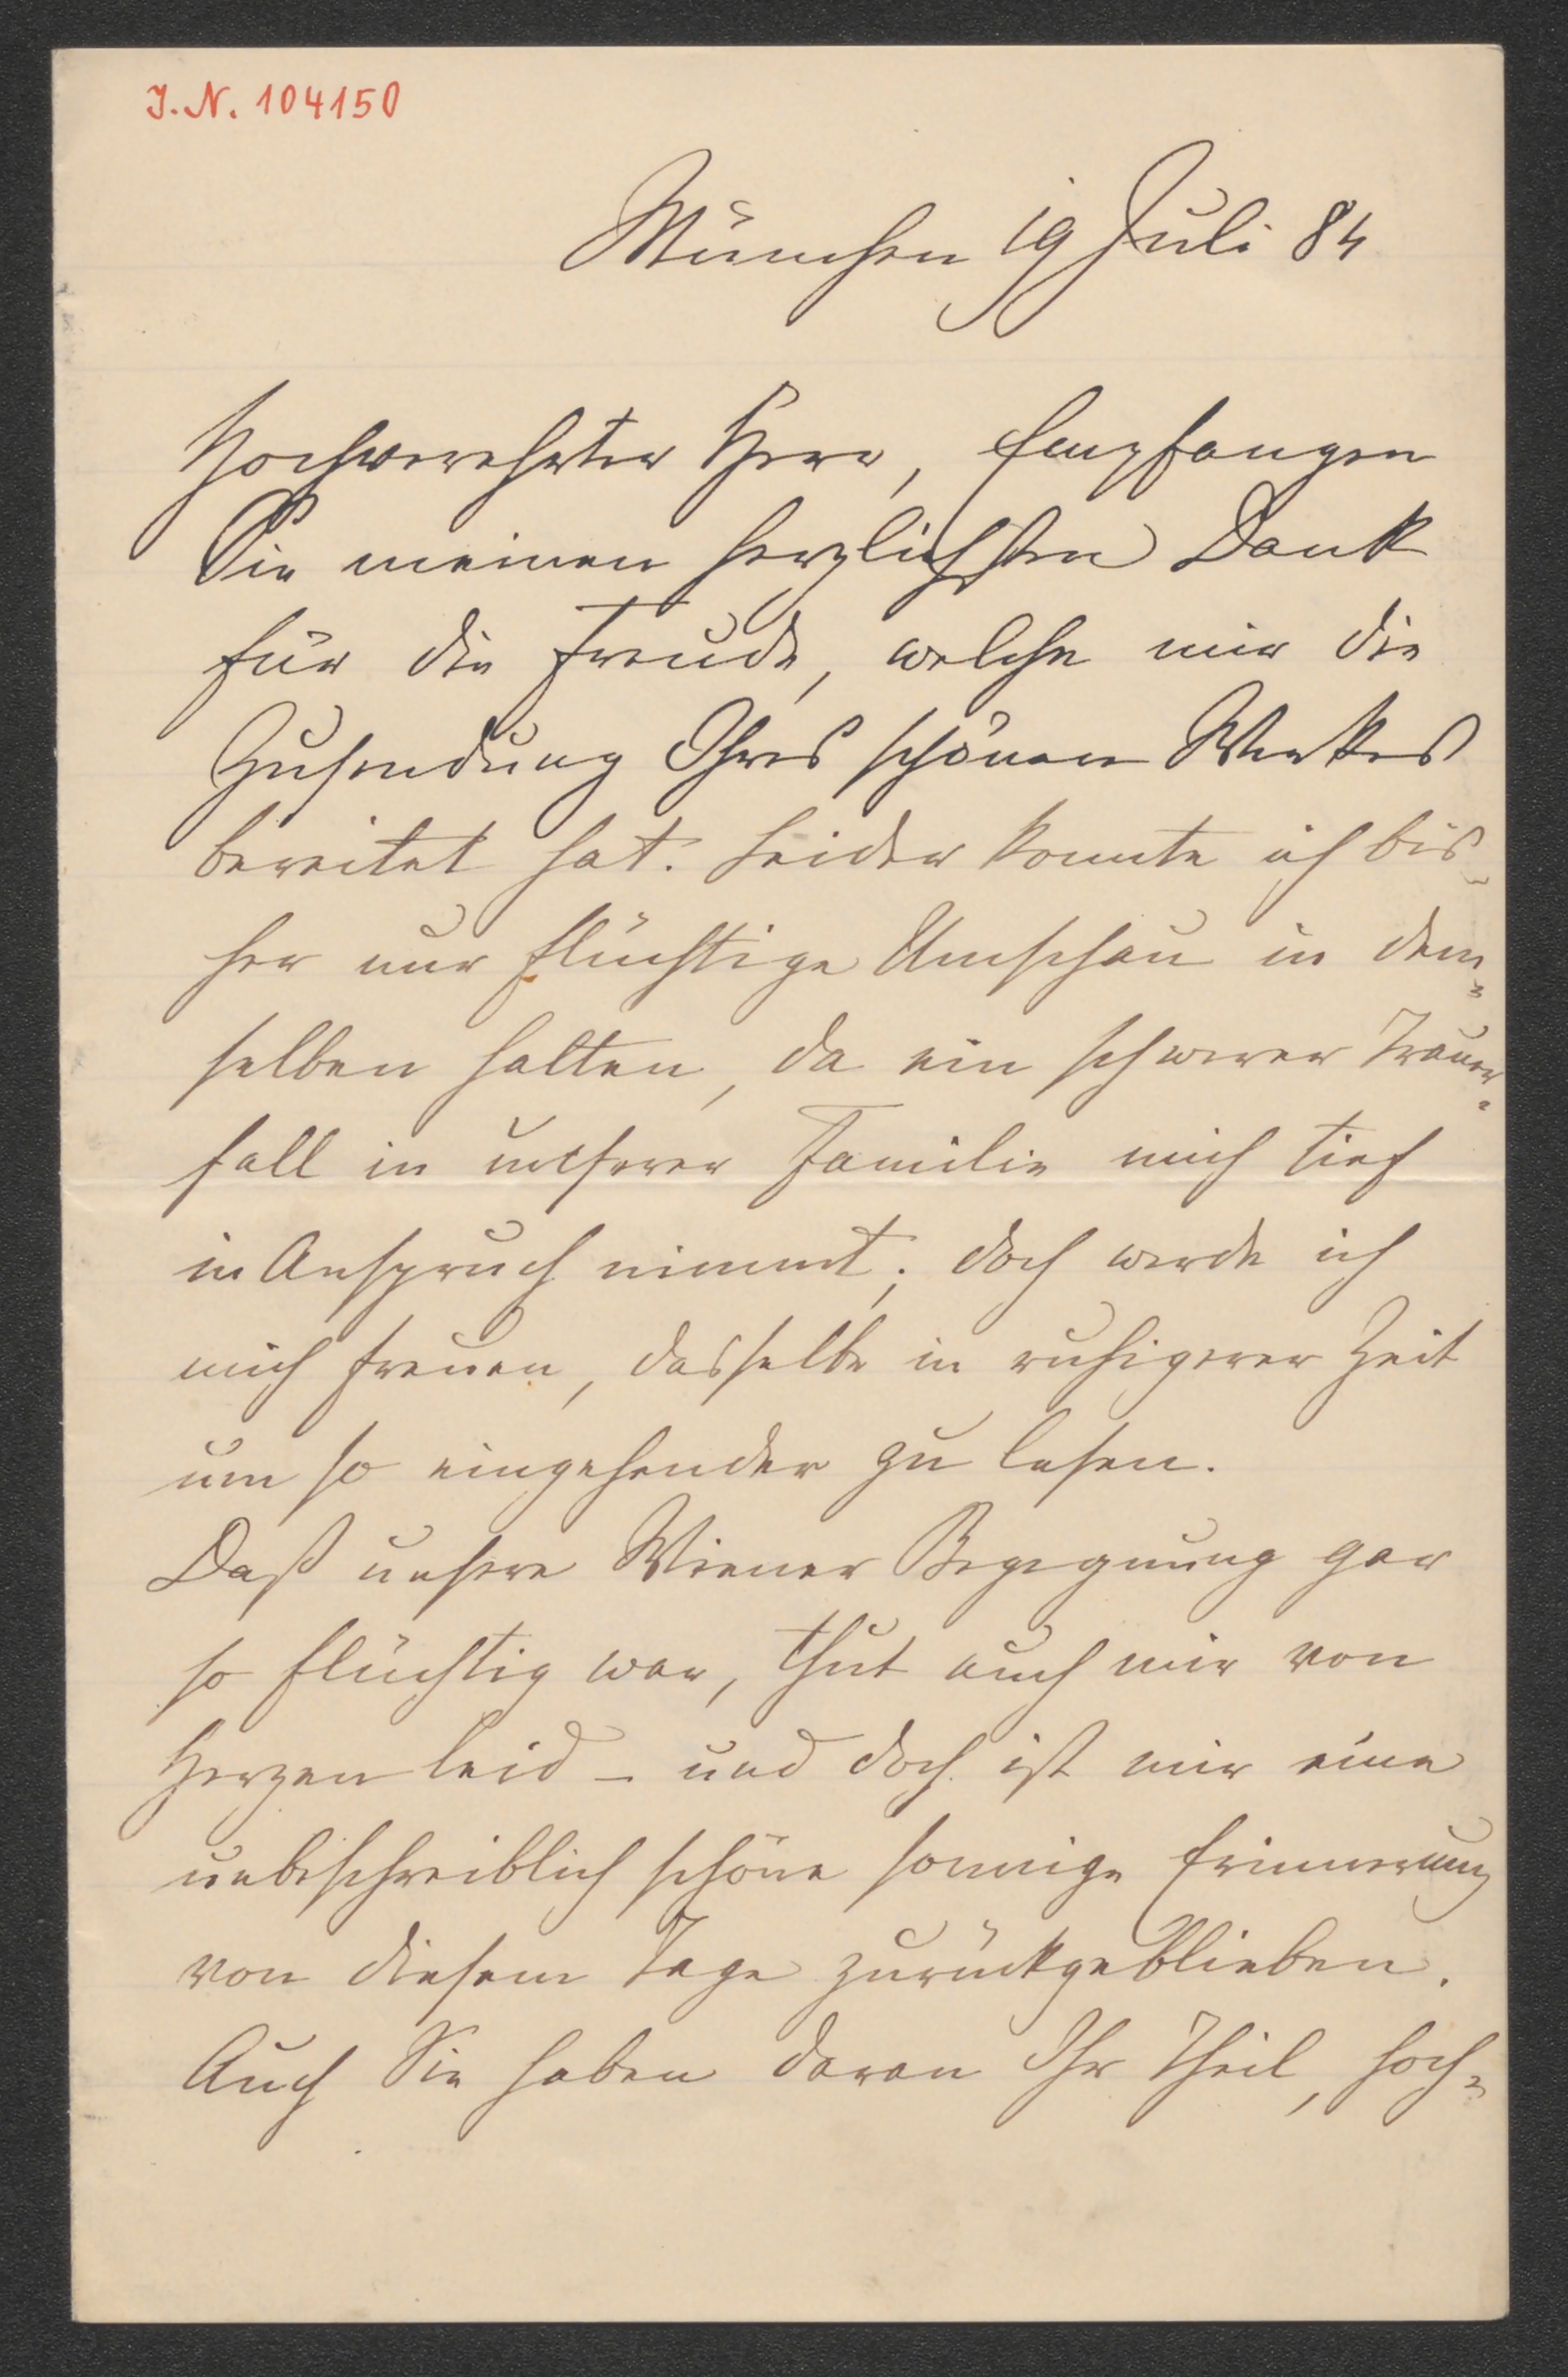 J. N. 104150
München 19 Juli 84
Hochverehrter Herr, Empfangen
Sie meinen herzlichsten Dank
für die Freude, welche mir die
Zusendung Ihres schönen Werkes
bereitet hat. Leider konnte ich bis-
her nur flüchtige Umschau in dem-
selben halten, da ein schwerer Trauer-
fall in unserer Familie mich tief
in Anspruch nimmt; doch werde ich
mich freuen, dasselbe in ruhigerer Zeit
um so eingehender zu lesen.
Daß unsere Wiener Begegnung gar
so flüchtig war, thut auch mir von
Herzen leid – und doch ist mir eine
unbeschreiblich schöne sonnige Erinnerung
von diesem Tage zurückgeblieben.
Auch Sie haben daran Ihr Theil, hoch-